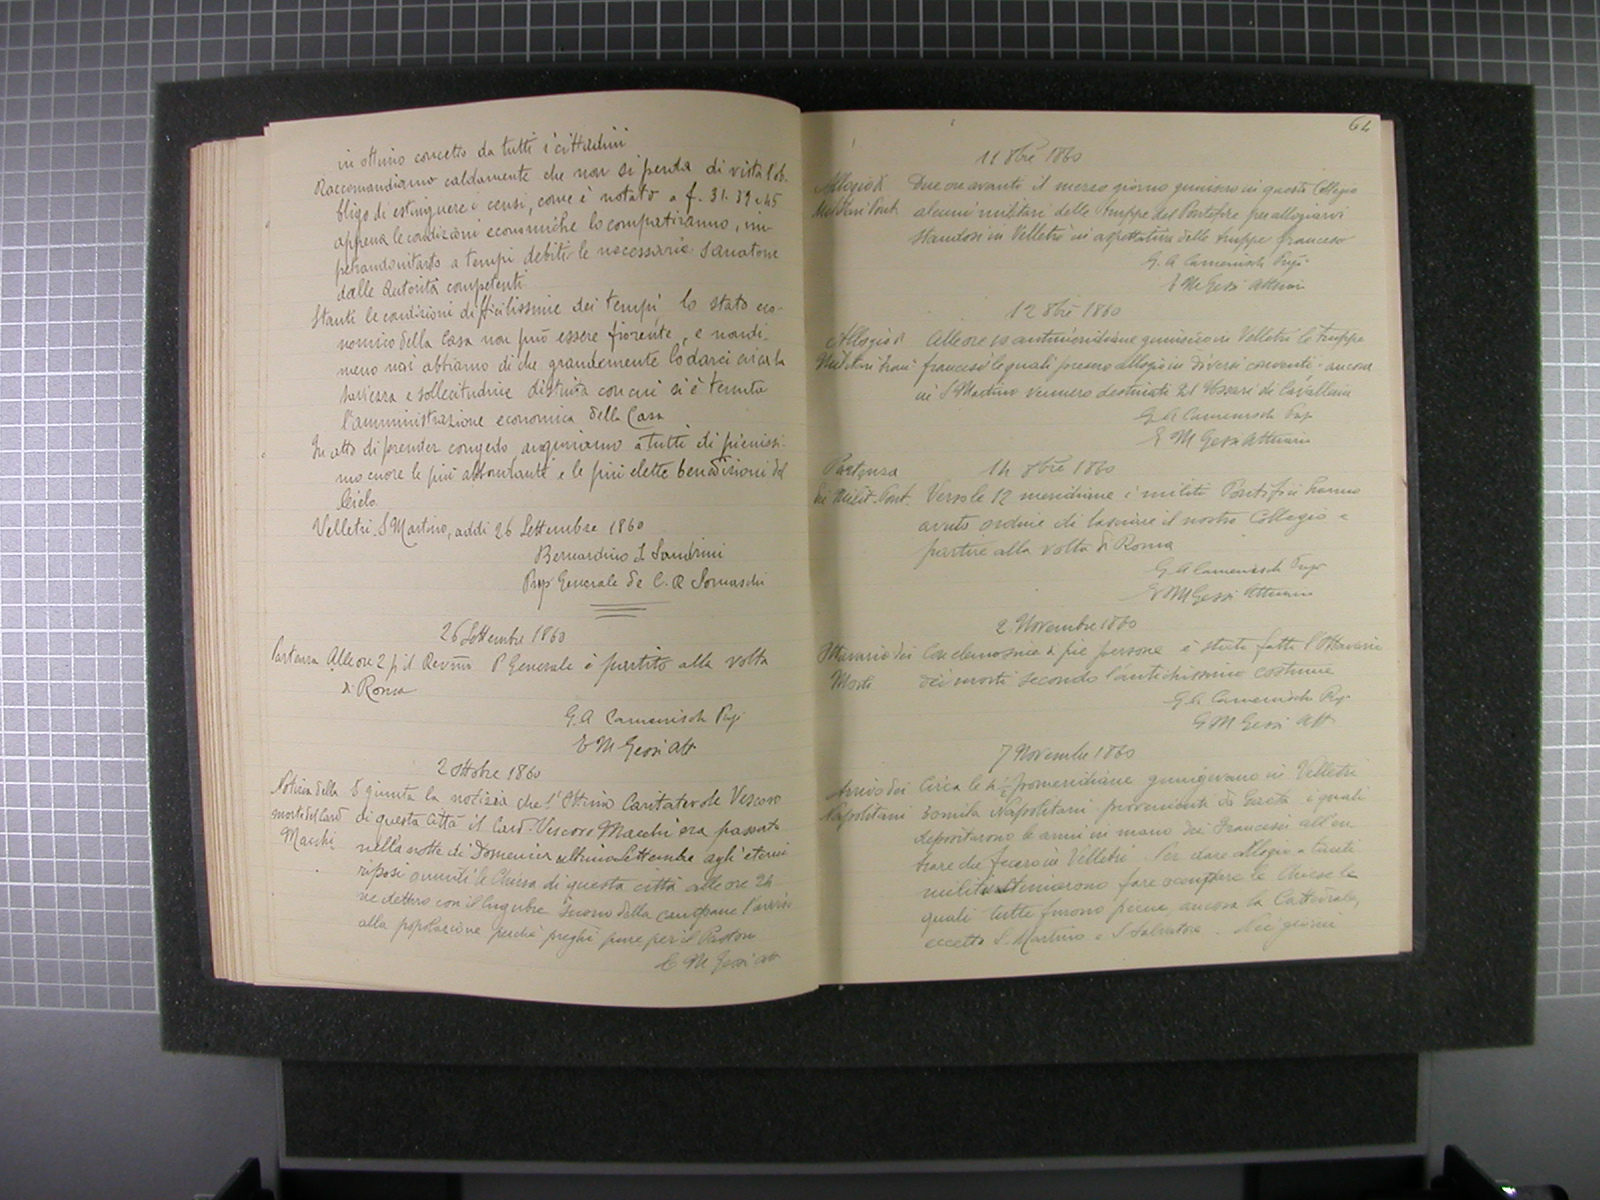 in ottimo concetto da tutti i cittadini
Raccomandiamo caldamente che non si perda di vista l'ob-
bligo di estinguere i censi, come è notato a f. 31. 39 e 45
appena le condizioni economiche lo compatiranno, im-
petrando a tempi debiti le necessarie Sanatorie
dalle Autorità competenti
Stanti le condizioni difficilissime dei tempi, lo stato eco-
nomico della Casa non può essere fiorente, e nondi-
meno noi abbiamo di che grandemente lodarci circa la
e sollecitudine distinta con cui si è tenuta
l'amministrazione economica della Casa
In atto di prender congedo auguriamo a tutti di pienissi-
mo cuore le più abbondanti e le più elette benedizioni del
Cielo
Velletri. S. Martino, addi 26 Settembre 1860
Bernardino S. Sandrini
Prep. Generale de C. R. Somaschi
26 Settembre 1860
Partenza Alle ore 2 p. il Revmo P. Generale è partito alla volta
di Roma
G. A Camenisch Prep.
E M Gessi Att.
2 Ottobre 1860
Notizia della È giunta la notizia che l'Ottimo Caritatevole Vescovo
morte del Card di questa Città il Card. Vescovo Macchi era passato
Macchi nella notte di Domenica ultimo Settembre agli eterni
riposi le Chiese di questa città alle ore 24
ne dettero con il lugubre suono della campane l'avviso
alla popolazione perchè preghi pace per il Pastore
E M Gessi Att
64
11 8bre 1860
Allogio di Due ore avanti il mezzo giorno giunsero in questo Collegio
Militari Pont. alcuni militari delle truppe del Pontefice per allogiarvi
standosi in Velletri in aspettativa delle truppe francesi
G. A Camenisch Prep.
E M Gessi Attuario
12 8bre 1860
Allogio di Alle ore 10 antimeridiane giunsero in Velletri le truppe
Militari Fran. francesi le quali presero allogio in diversi conventi. ancora
in S Martino vennero destinati 21 Ussari di Cavalleria
G. A Camenisch Prep
E M Gessi Attuario
Partenza 14 8bre 1860
dei Milit. Pont. Verso le 12 meridiane i militi Pontifici hanno
avuto ordine di lasciare il nostro Collegio e
partire alla volta di Roma
G A Camenisch Prep
E M Gessi Attuario
2 Novembre 1860
Ottavario dei Con elemosine di pie persone è stato fatto l'Ottavario
Morti dei morti secondo l'antichissimo costume
G A Camenisch Prep
E M Gessi Att.
7 Novembre 1860
Arrivo dei Circa le 4 1/2 pomeridiane giungevano in Velletri
Napolitani mila Napolitani provenienti da Gaeta i quali
depositarono le armi in mano dei Francesi all'en
trare che fecero in Velletri. Per dare allogio a tanti
militi fare occupare le Chiese le
quali tutte furono piene, ancora la Cattedrale,
eccetto S. Martino e S Salvatore. Nei giorni